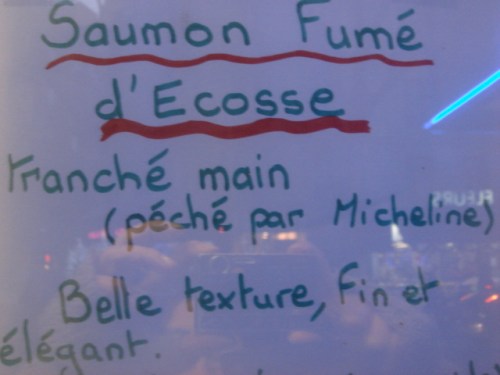 Saumon Fumé
d'Ecosse
Tranché main
(péché par Micheline)
Belle texture, Fin et
élégant.
FLEURS